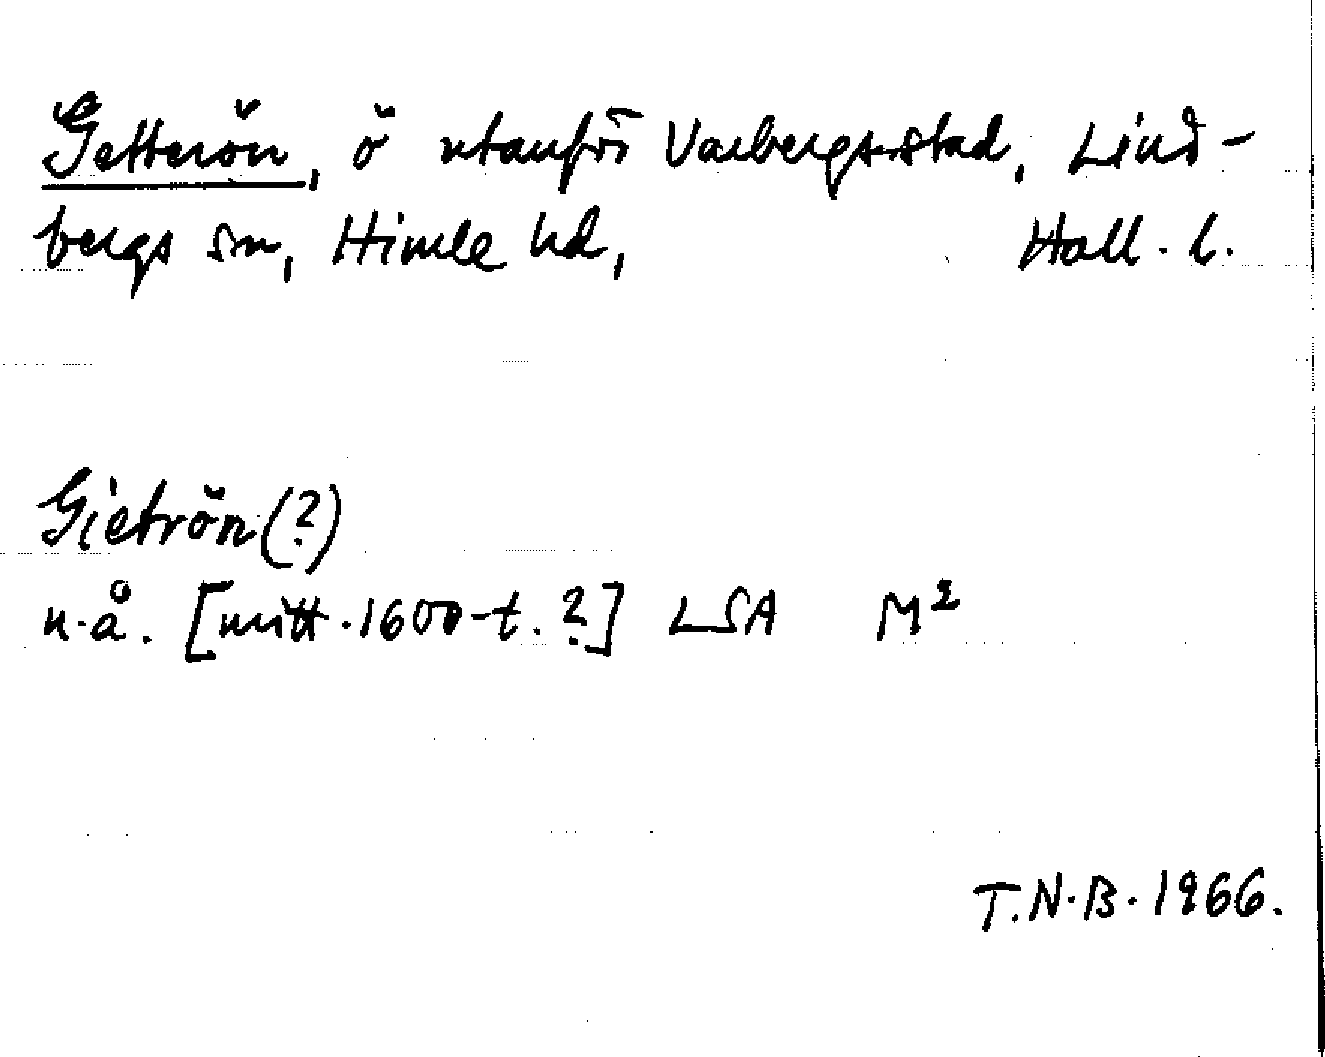 Getterön, ö utanför Varbergs stad, Lind-
bergs sn, Himle hd, Hall. l.
Gietrön (?)
u.å. [mitt. 1600-t. ?] LSA M²
T.N.B. 1966.